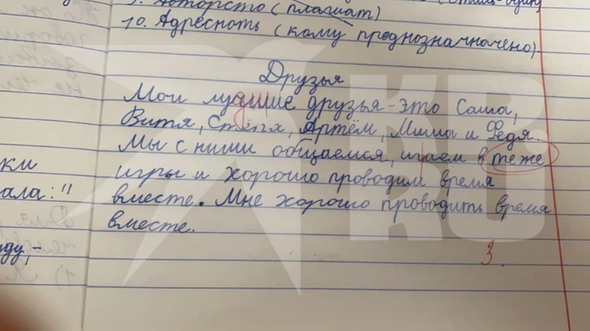 9. Авторство (плагиат)
10. Адресноть (кому преднозначначено)
Друзья
Мои лучшие друзья - это Саша,
Витя, Стёпа, Артём, Миша и Федя.
Мы с ними общаемся, играем в теже
ки
игры и хорошо проводим время
ала:"
вместе. Мне хорошо проводить время
вместе.
ду,-
3.
КВ